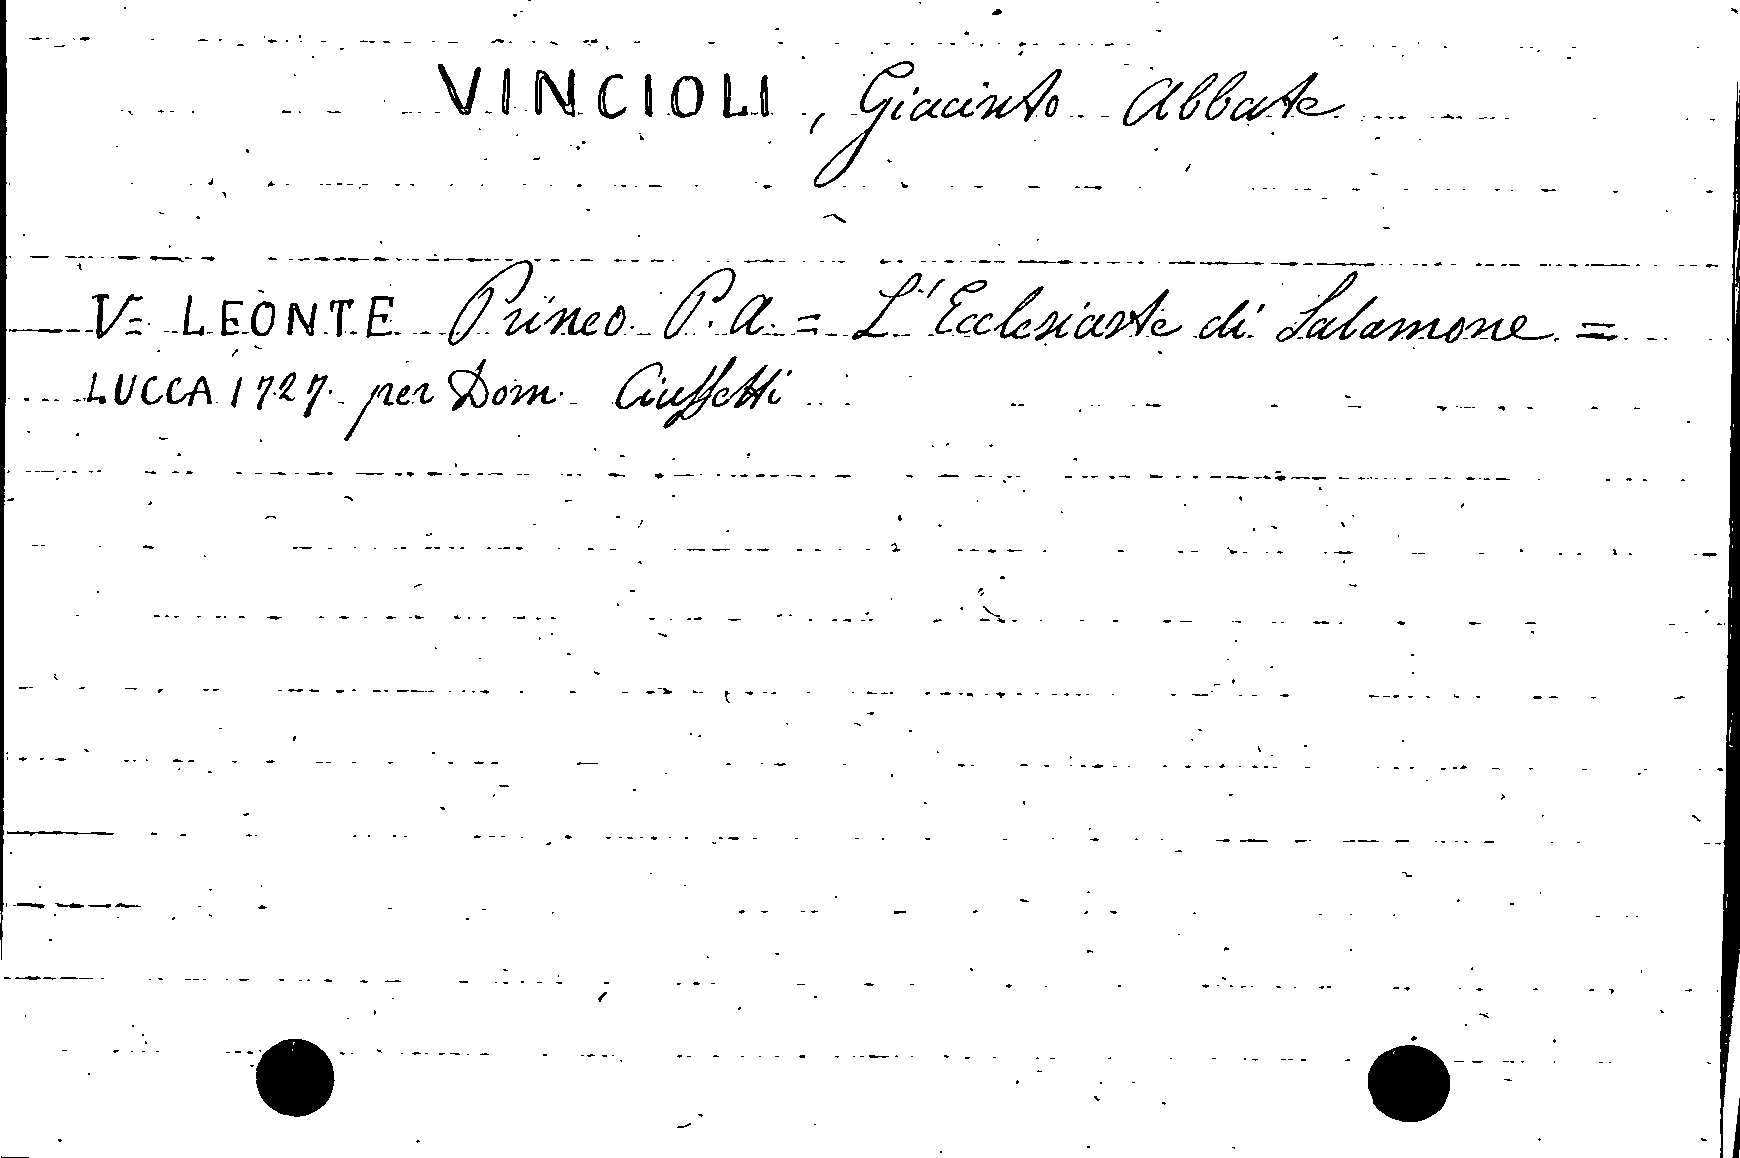 VINCIOLI, Giacinto Abbate
V= LEONTE Prineo P.A. = L'Ecclesiaste di Salamone =
LUCCA 1727. per Dom. Ciuffetti